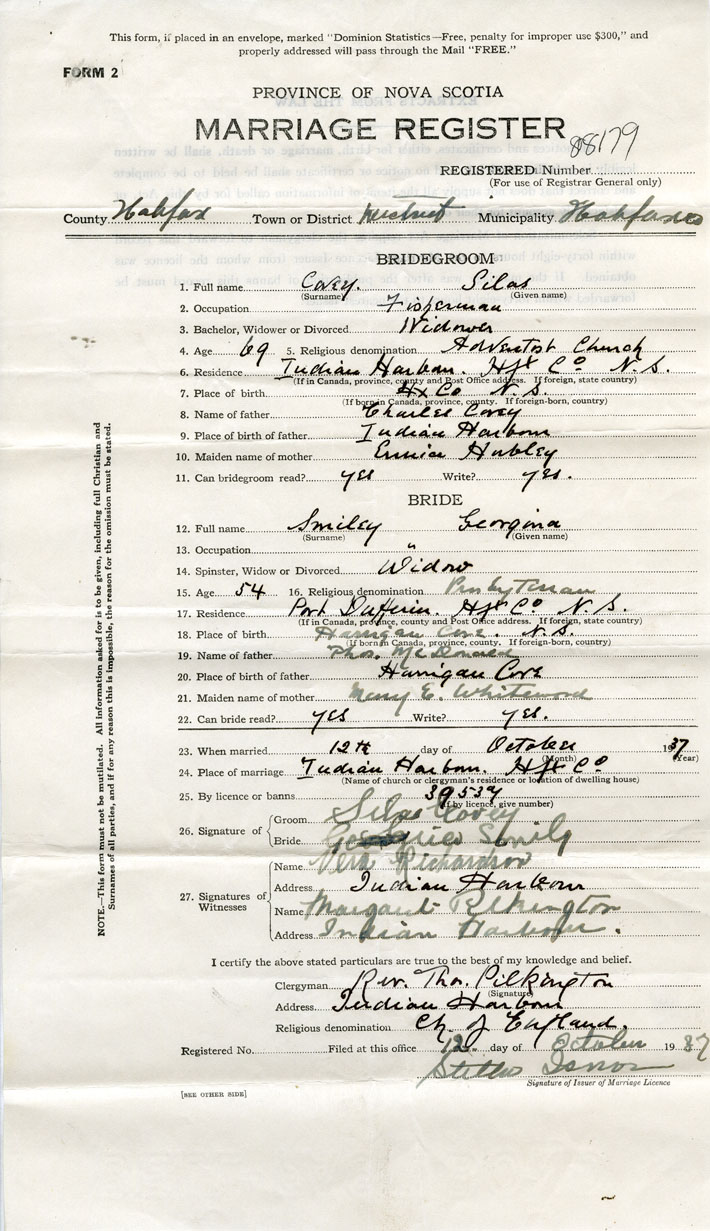 This form, if placed in an envelope, marked "Dominion Statistics—Free, penalty for improper use $300," and
properly addressed will pass through the Mail "FREE."
FORM 2
PROVINCE OF NOVA SCOTIA
MARRIAGE REGISTER
88179
REGISTERED Number
(For use of Registrar General only)
County Halifax Town or District District Municipality Halifax
BRIDEGROOM
1. Full name Covey. Silas
(Surname) (Given name)
2. Occupation Fisherman
3. Bachelor, Widower or Divorced Widower
4. Age 69 5. Religious denomination Adventist Church
6. Residence Indian Harbour. Hfx Co N. S.
(If in Canada, province, county and Post Office address. If foreign, state country)
7. Place of birth Hx Co N. S.
(If born in Canada, province, county. If foreign-born, country)
8. Name of father Charles Covey
9. Place of birth of father Indian Harbour
10. Maiden name of mother Hubley
11. Can bridegroom read? yes Write? yes.
BRIDE
12. Full name Smiley Georgina
(Surname) (Given name)
13. Occupation "
14. Spinster, Widow or Divorced Widow
15. Age 54 16. Religious denomination Presbyterian
17. Residence Port Dufferin. Hfx Co N. S.
(If in Canada, province, county and Post Office address. If foreign, state country)
18. Place of birth Harrigan Cove. N. S.
(If born in Canada, province, county. If foreign-born, country)
19. Name of father Thos. McDonald
20. Place of birth of father Harrigan Cove
21. Maiden name of mother Mary E. Whitewood
22. Can bride read? yes Write? yes.
23. When married 12th day of October 1937
(Month) (Year)
24. Place of marriage Indian Harbour. Hfx Co
(Name of church or clergyman's residence or location of dwelling house)
25. By licence or banns 39537
(If by licence, give number)
26. Signature of
Groom Silas Covey
Bride Smily
27. Signatures of Witnesses
Name Vera Richardson
Address Indian Harbour
Name Margaret Pilkington
Address Indian Harbour.
I certify the above stated particulars are true to the best of my knowledge and belief.
Clergyman Rev. Tho. Pilkington
(Signature)
Address Indian Harbour
Religious denomination Ch. of England.
Registered No. Filed at this office 12 day of October 1937
Isnor
Signature of Issuer of Marriage Licence
[SEE OTHER SIDE]
NOTE.—This form must not be mutilated. All information asked for is to be given, including full Christian and
Surnames of all parties, and if for any reason this is impossible, the reason for the omission must be stated.